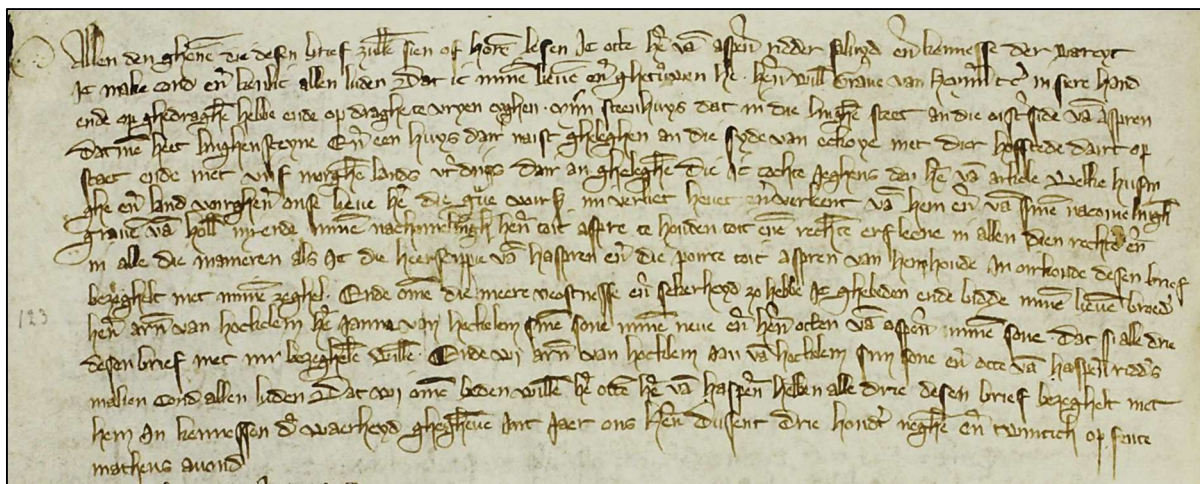 Allen den ghene die desen brief zulle sien of hore lesen Ic otte he va aspn ridder saluyd en kennesse der wareyt
Ic make cond en kenlic allen luden Dat ic mine lieve en ghetruwen he hen will grave van hen in sere hand
ende op ghedraghe hebbe ende op draghe te vryen eyghen mijn steenhuys dat in die linghe steet an die oist side va aspren
dat me heet linghensteyne En een huys dair naist gheleghen an die syde van echoye met dier hofstede dairt op
staet ende met vijf morghe lands dair an gheleghe die ic cochte jeghens den he va arkele welke husin
ghe en land vorghen onse lieve he die mi verliet hevet en verkent va hem en va sine nacomelingh
grave va holl mi ende mine nachomelingh hen toit aspre te houden toit ene rechte erfleene in allen dien rechte en
in alle die manieren als ic die heerscippie va haspren en die poirte toit aspren van hem houde In oirkonde desen brief
bezeghelt met mine zeghel Ende ome die meere vestnesse en sekerheyd zo hebbe ic ghebeden ende bidde mine lieve broed
hen arn van hoekelem he janne van heekelem sine sone mine neve en hen otten va aspn mine sone Dat si alle drie
desen brief met mi bezeghele wille Ende wi arn van hoekelem jan va hoekelem sijn sone en otte va haspn ridds
maken cond allen luden Dat wi ome beden wille he otte he va haspn hebben alle drie desen brief bezeghelt met
hem In kennessen d waerheyd ghegheve int jaer ons hen dusent drie hondt neghe en twintich op sente
matheus avond
123